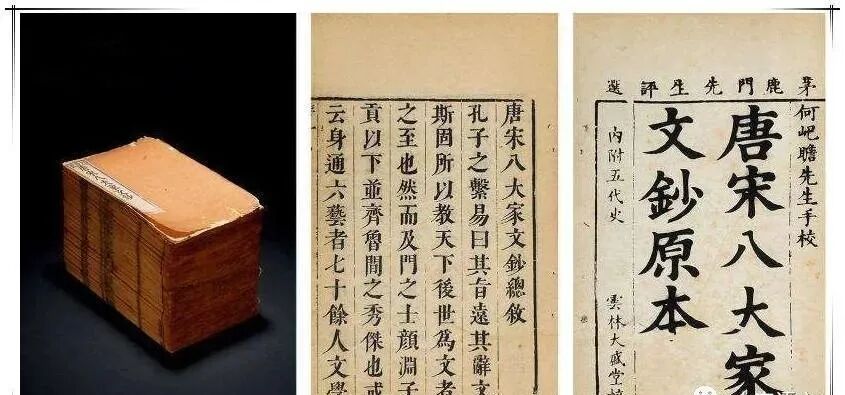 唐宋八大家文鈔總敘
孔子之繫易曰其旨遠其辭文
斯固所以教天下後世爲文者
之至也然而及門之士顏淵子
貢以下並齊魯間之秀傑也或
云身通六藝者七十餘人文學
茅鹿門先生評選
何屺瞻先生手校
唐宋八大家
文鈔原本
內附五代史
雲林大盛堂